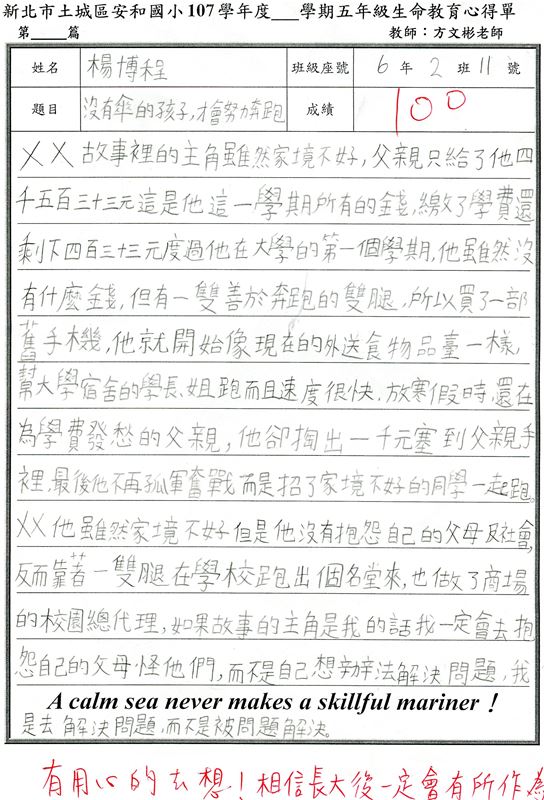 新北市土城區安和國小107學年度___學期五年級生命教育心得單
第_____篇 教師：方文彬老師
姓名 楊博程 班級座號 6 年 2 班 11 號
題目 沒有傘的孩子，才會努力奔跑 成績 100
㐅㐅故事裡的主角雖然家境不好，父親只給了他四
千五百三十三元這是他這一學期所有的錢，繳了學費還
剩下四百三十三元度過他在大學的第一個學期，他雖然沒
有什麼錢，但有一雙善於奔跑的雙腿，所以買了一部
舊手機，他就開始像現在的外送食物品臺一樣，
幫大學宿舍的學長、姐跑而且速度很快，放寒假時，還在
為學費發愁的父親，他卻掏出一千元塞到父親手
裡，最後他不再孤軍奮戰而是招了家境不好的同學一起跑。
㐅㐅他雖然家境不好但是他沒有抱怨自己的父母及社會，
反而靠著一雙腿在學校跑出個名堂來，也做了商場
的校園總代理，如果故事的主角是我的話我一定會去抱
怨自己的父母怪他們，而不是自己想辦法解決問題，我
A calm sea never makes a skillful mariner！
是去解決問題，而不是被問題解決。
有用心的去想！相信長大後一定會有所作為